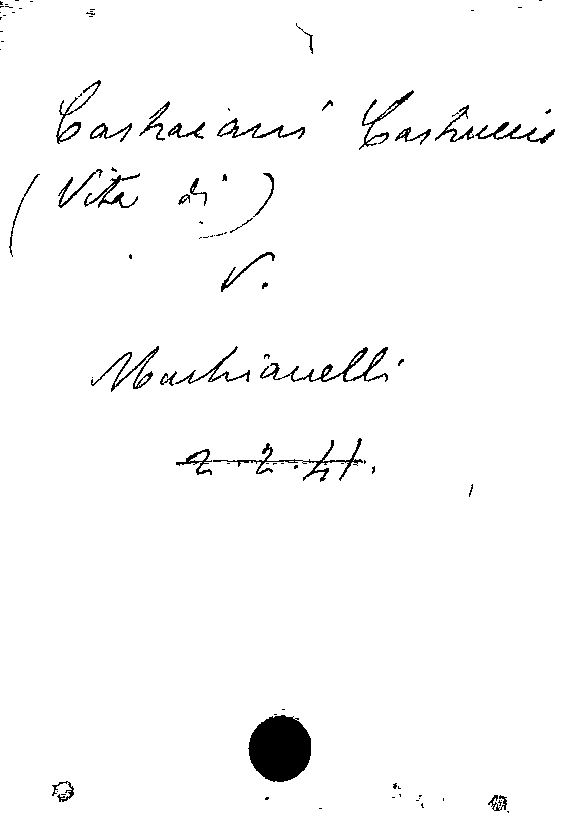 Castracani Castruccio
(Vita di)
V.
Machiavelli
2.2.41.